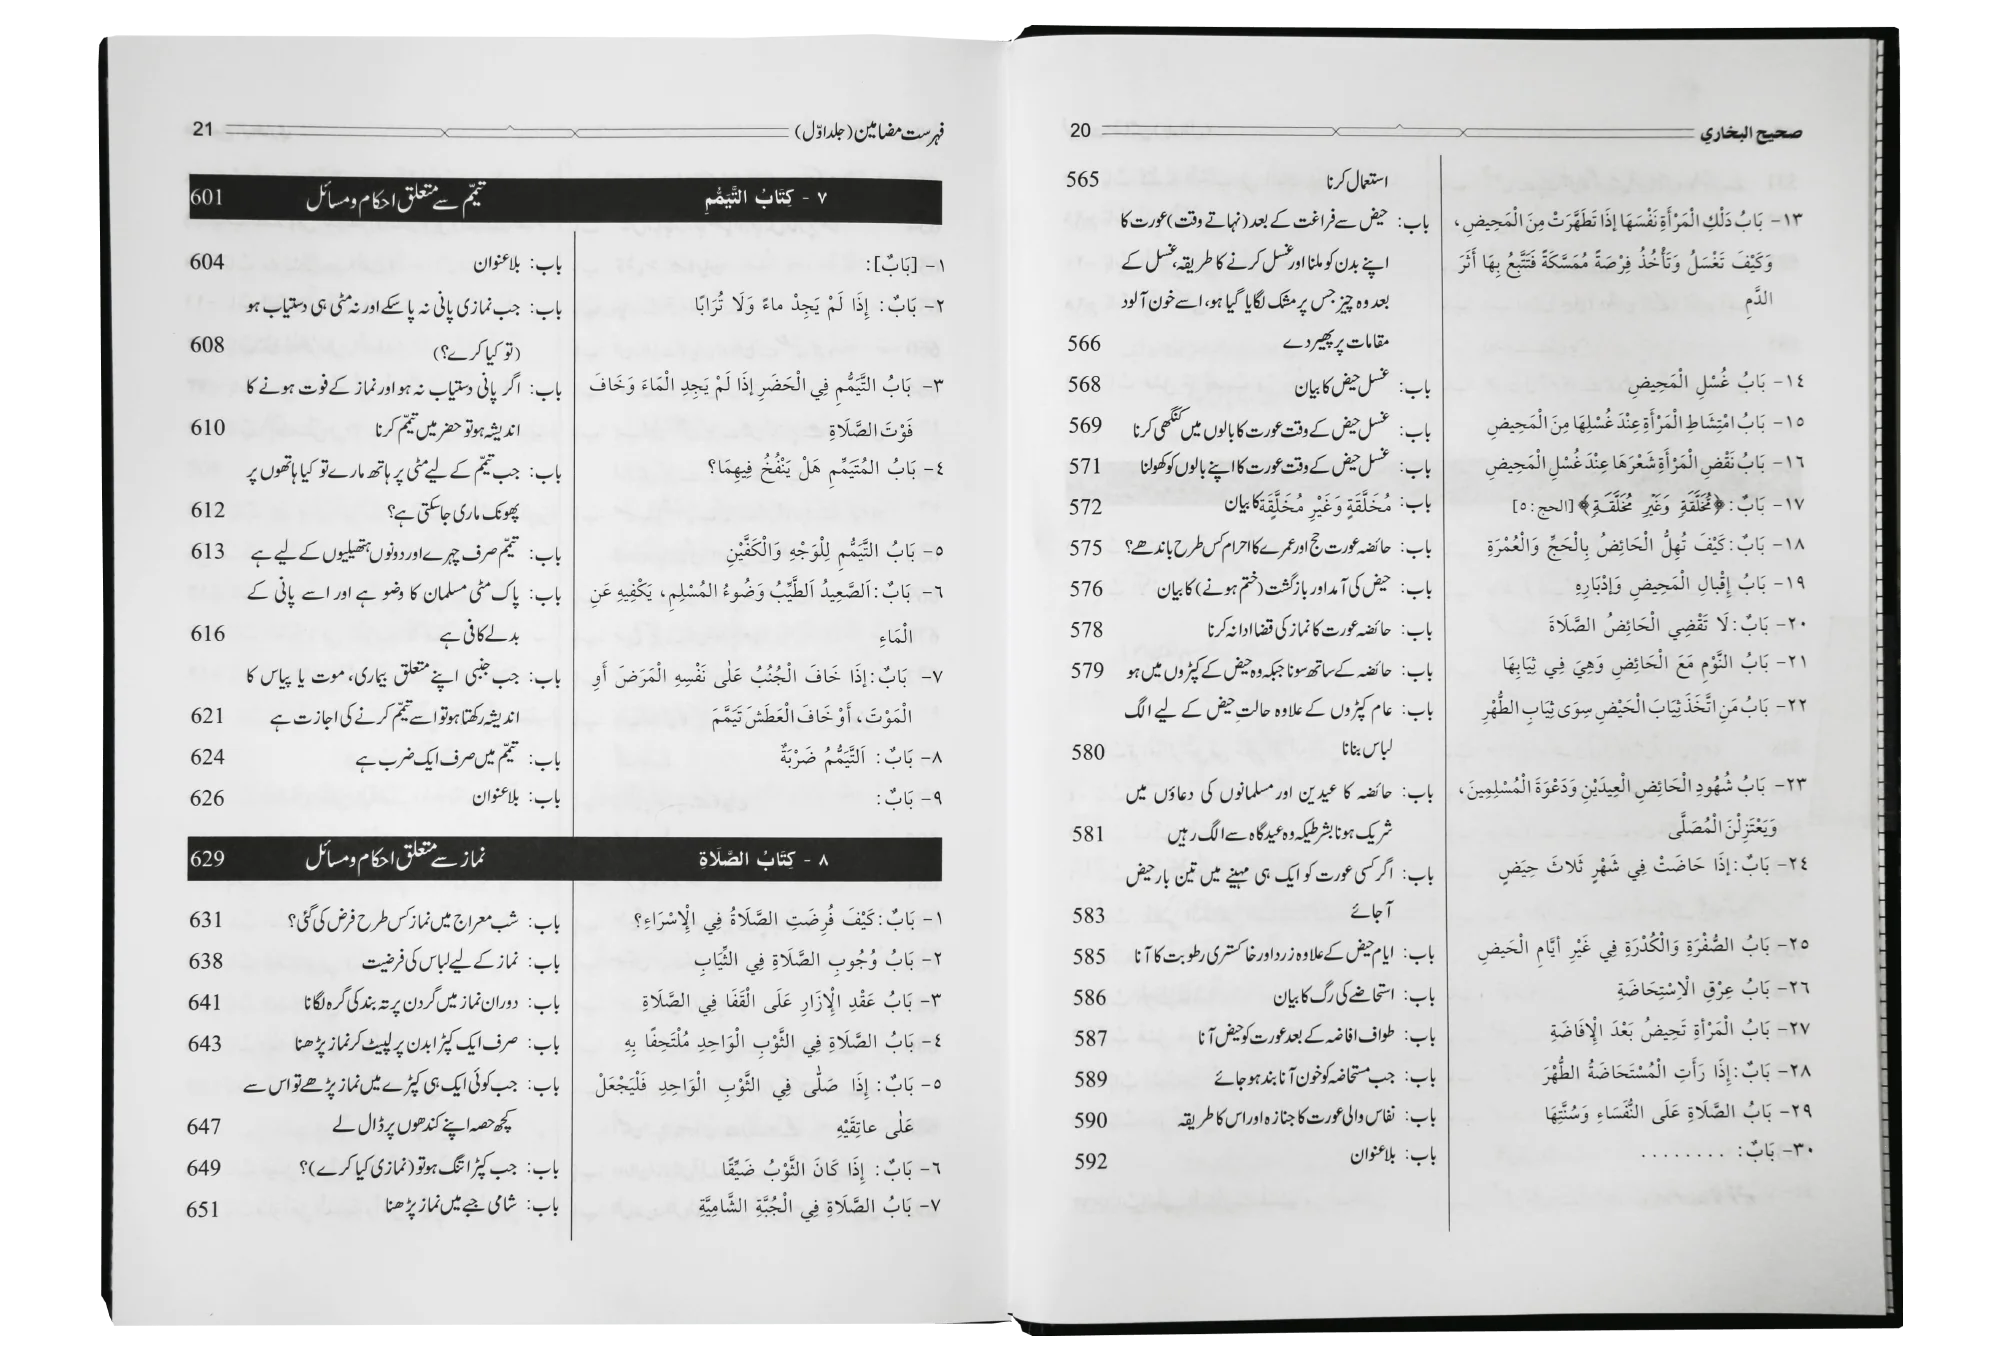 صحيح البخاري 20
استعمال کرنا 565
١٣- بَابُ دَلْكِ الْمَرْأَةِ نَفْسَهَا إِذَا تَطَهَّرَتْ مِنَ الْمَحِيضِ، باب: حیض سے فراغت کے بعد (نہاتے وقت) عورت کا
وَكَيْفَ تَغْسَلُ وَتَأْخُذُ فِرْصَةً مُمَسَّكَةً فَتَتَّبِعُ بِهَا أَثَرَ اپنے بدن کو ملنا اور غسل کرنے کا طریقہ، غسل کے
الدَّمِ بعد وہ چیز جس پر مشک لگایا گیا ہو، اسے خون آلود
مقامات پر پھیر دے 566
١٤- بَابُ غُسْلِ الْمَحِيضِ باب: غسل حیض کا بیان 568
١٥- بَابُ امْتِشَاطِ الْمَرْأَةِ عِنْدَ غُسْلِهَا مِنَ الْمَحِيضِ باب: غسل حیض کے وقت عورت کا بالوں میں کنگھی کرنا 569
١٦- بَابُ نَقْضِ الْمَرْأَةِ شَعْرَهَا عِنْدَ غُسْلِ الْمَحِيضِ باب: غسل حیض کے وقت عورت کا اپنے بالوں کو کھولنا 571
١٧- بَابٌ: ﴿مُخَلَّقَةٍ وَغَيْرِ مُخَلَّقَةٍ﴾ [الحج: ٥] باب: مُخَلَّقَةٍ وَغَيْرِ مُخَلَّقَةٍ کا بیان 572
١٨- بَابٌ: كَيْفَ تُهِلُّ الْحَائِضُ بِالْحَجِّ وَالْعُمْرَةِ باب: حائضہ عورت حج اور عمرے کا احرام کس طرح باندھے؟ 575
١٩- بَابُ إِقْبَالِ الْمَحِيضِ وَإِدْبَارِهِ باب: حیض کی آمد اور بازگشت (ختم ہونے) کا بیان 576
٢٠- بَابٌ: لَا تَقْضِي الْحَائِضُ الصَّلَاةَ باب: حائضہ عورت کا نماز کی قضا ادا نہ کرنا 578
٢١- بَابُ النَّوْمِ مَعَ الْحَائِضِ وَهِيَ فِي ثِيَابِهَا باب: حائضہ کے ساتھ سونا جبکہ وہ حیض کے کپڑوں میں ہو 579
٢٢- بَابُ مَنِ اتَّخَذَ ثِيَابَ الْحَيْضِ سِوَى ثِيَابِ الطُّهْرِ باب: عام کپڑوں کے علاوہ حالتِ حیض کے لیے الگ
لباس بنانا 580
٢٣- بَابُ شُهُودِ الْحَائِضِ الْعِيدَيْنِ وَدَعْوَةَ الْمُسْلِمِينَ، باب: حائضہ کا عیدین اور مسلمانوں کی دعاؤں میں
وَيَعْتَزِلْنَ الْمُصَلَّى شریک ہونا بشرطیکہ وہ عیدگاہ سے الگ رہیں 581
٢٤- بَابٌ: إِذَا حَاضَتْ فِي شَهْرٍ ثَلَاثَ حِيَضٍ باب: اگر کسی عورت کو ایک ہی مہینے میں تین بار حیض
آجائے 583
٢٥- بَابُ الصُّفْرَةِ وَالْكُدْرَةِ فِي غَيْرِ أَيَّامِ الْحَيضِ باب: ایام حیض کے علاوہ زرد اور خاکستری رطوبت کا آنا 585
٢٦- بَابُ عِرْقِ الْاِسْتِحَاضَةِ باب: استحاضے کی رگ کا بیان 586
٢٧- بَابُ الْمَرْأَةِ تَحِيضُ بَعْدَ الْإِفَاضَةِ باب: طواف افاضہ کے بعد عورت کو حیض آنا 587
٢٨- بَابٌ: إِذَا رَأَتِ الْمُسْتَحَاضَةُ الطُّهْرَ باب: جب مستحاضہ کو خون آنا بند ہوجائے 589
٢٩- بَابُ الصَّلَاةِ عَلَى النُّفَسَاءِ وَسُنَّتِهَا باب: نفاس والی عورت کا جنازہ اور اس کا طریقہ 590
٣٠- بَابٌ: ........ باب: بلاعنوان 592
فہرست مضامین (جلد اوّل) 21
٧ - كِتَابُ التَّيَمُّمِ تیمّم سے متعلق احکام و مسائل 601
١- [بَابٌ]: باب: بلاعنوان 604
٢- بَابٌ: إِذَا لَمْ يَجِدْ مَاءً وَلَا تُرَابًا باب: جب نمازی پانی نہ پاسکے اور نہ مٹی ہی دستیاب ہو
(تو کیا کرے؟) 608
٣- بَابُ التَّيَمُّمِ فِي الْحَضَرِ إِذَا لَمْ يَجِدِ الْمَاءَ وَخَافَ باب: اگر پانی دستیاب نہ ہو اور نماز کے فوت ہونے کا
فَوْتَ الصَّلَاةِ اندیشہ ہو تو حضر میں تیمّم کرنا 610
٤- بَابُ الْمُتَيَمِّمِ هَلْ يَنْفُخُ فِيهِمَا؟ باب: جب تیمّم کے لیے مٹی پر ہاتھ مارے تو کیا ہاتھوں پر
پھونک ماری جاسکتی ہے؟ 612
٥- بَابُ التَّيَمُّمِ لِلْوَجْهِ وَالْكَفَّيْنِ باب: تیمّم صرف چہرے اور دونوں ہتھیلیوں کے لیے ہے 613
٦- بَابٌ: اَلصَّعِيدُ الطَّيِّبُ وَضُوءُ الْمُسْلِمِ، يَكْفِيهِ عَنِ باب: پاک مٹی مسلمان کا وضو ہے اور اسے پانی کے
الْمَاءِ بدلے کافی ہے 616
٧- بَابٌ: إِذَا خَافَ الْجُنُبُ عَلَى نَفْسِهِ الْمَرَضَ أَوِ باب: جب جنبی اپنے متعلق بیماری، موت یا پیاس کا
الْمَوْتَ، أَوْ خَافَ الْعَطَشَ تَيَمَّمَ اندیشہ رکھتا ہو تو اسے تیمّم کرنے کی اجازت ہے 621
٨- بَابٌ: اَلتَّيَمُّمُ ضَرْبَةٌ باب: تیمّم میں صرف ایک ضرب ہے 624
٩- بَابٌ: باب: بلاعنوان 626
٨ - كِتَابُ الصَّلَاةِ نماز سے متعلق احکام و مسائل 629
١- بَابٌ: كَيْفَ فُرِضَتِ الصَّلَاةُ فِي الْإِسْرَاءِ؟ باب: شب معراج میں نماز کس طرح فرض کی گئی؟ 631
٢- بَابُ وُجُوبِ الصَّلَاةِ فِي الثِّيَابِ باب: نماز کے لیے لباس کی فرضیت 638
٣- بَابُ عَقْدِ الْإِزَارِ عَلَى الْقَفَا فِي الصَّلَاةِ باب: دوران نماز میں گردن پر تہ بند کی گرہ لگانا 641
٤- بَابُ الصَّلَاةِ فِي الثَّوْبِ الْوَاحِدِ مُلْتَحِفًا بِهِ باب: صرف ایک کپڑا بدن پر لپیٹ کر نماز پڑھنا 643
٥- بَابٌ: إِذَا صَلَّى فِي الثَّوْبِ الْوَاحِدِ فَلْيَجْعَلْ باب: جب کوئی ایک ہی کپڑے میں نماز پڑھے تو اس سے
عَلَى عَاتِقَيْهِ کچھ حصہ اپنے کندھوں پر ڈال لے 647
٦- بَابٌ: إِذَا كَانَ الثَّوْبُ ضَيِّقًا باب: جب کپڑا تنگ ہو تو (نمازی کیا کرے)؟ 649
٧- بَابُ الصَّلَاةِ فِي الْجُبَّةِ الشَّامِيَّةِ باب: شامی جبے میں نماز پڑھنا 651